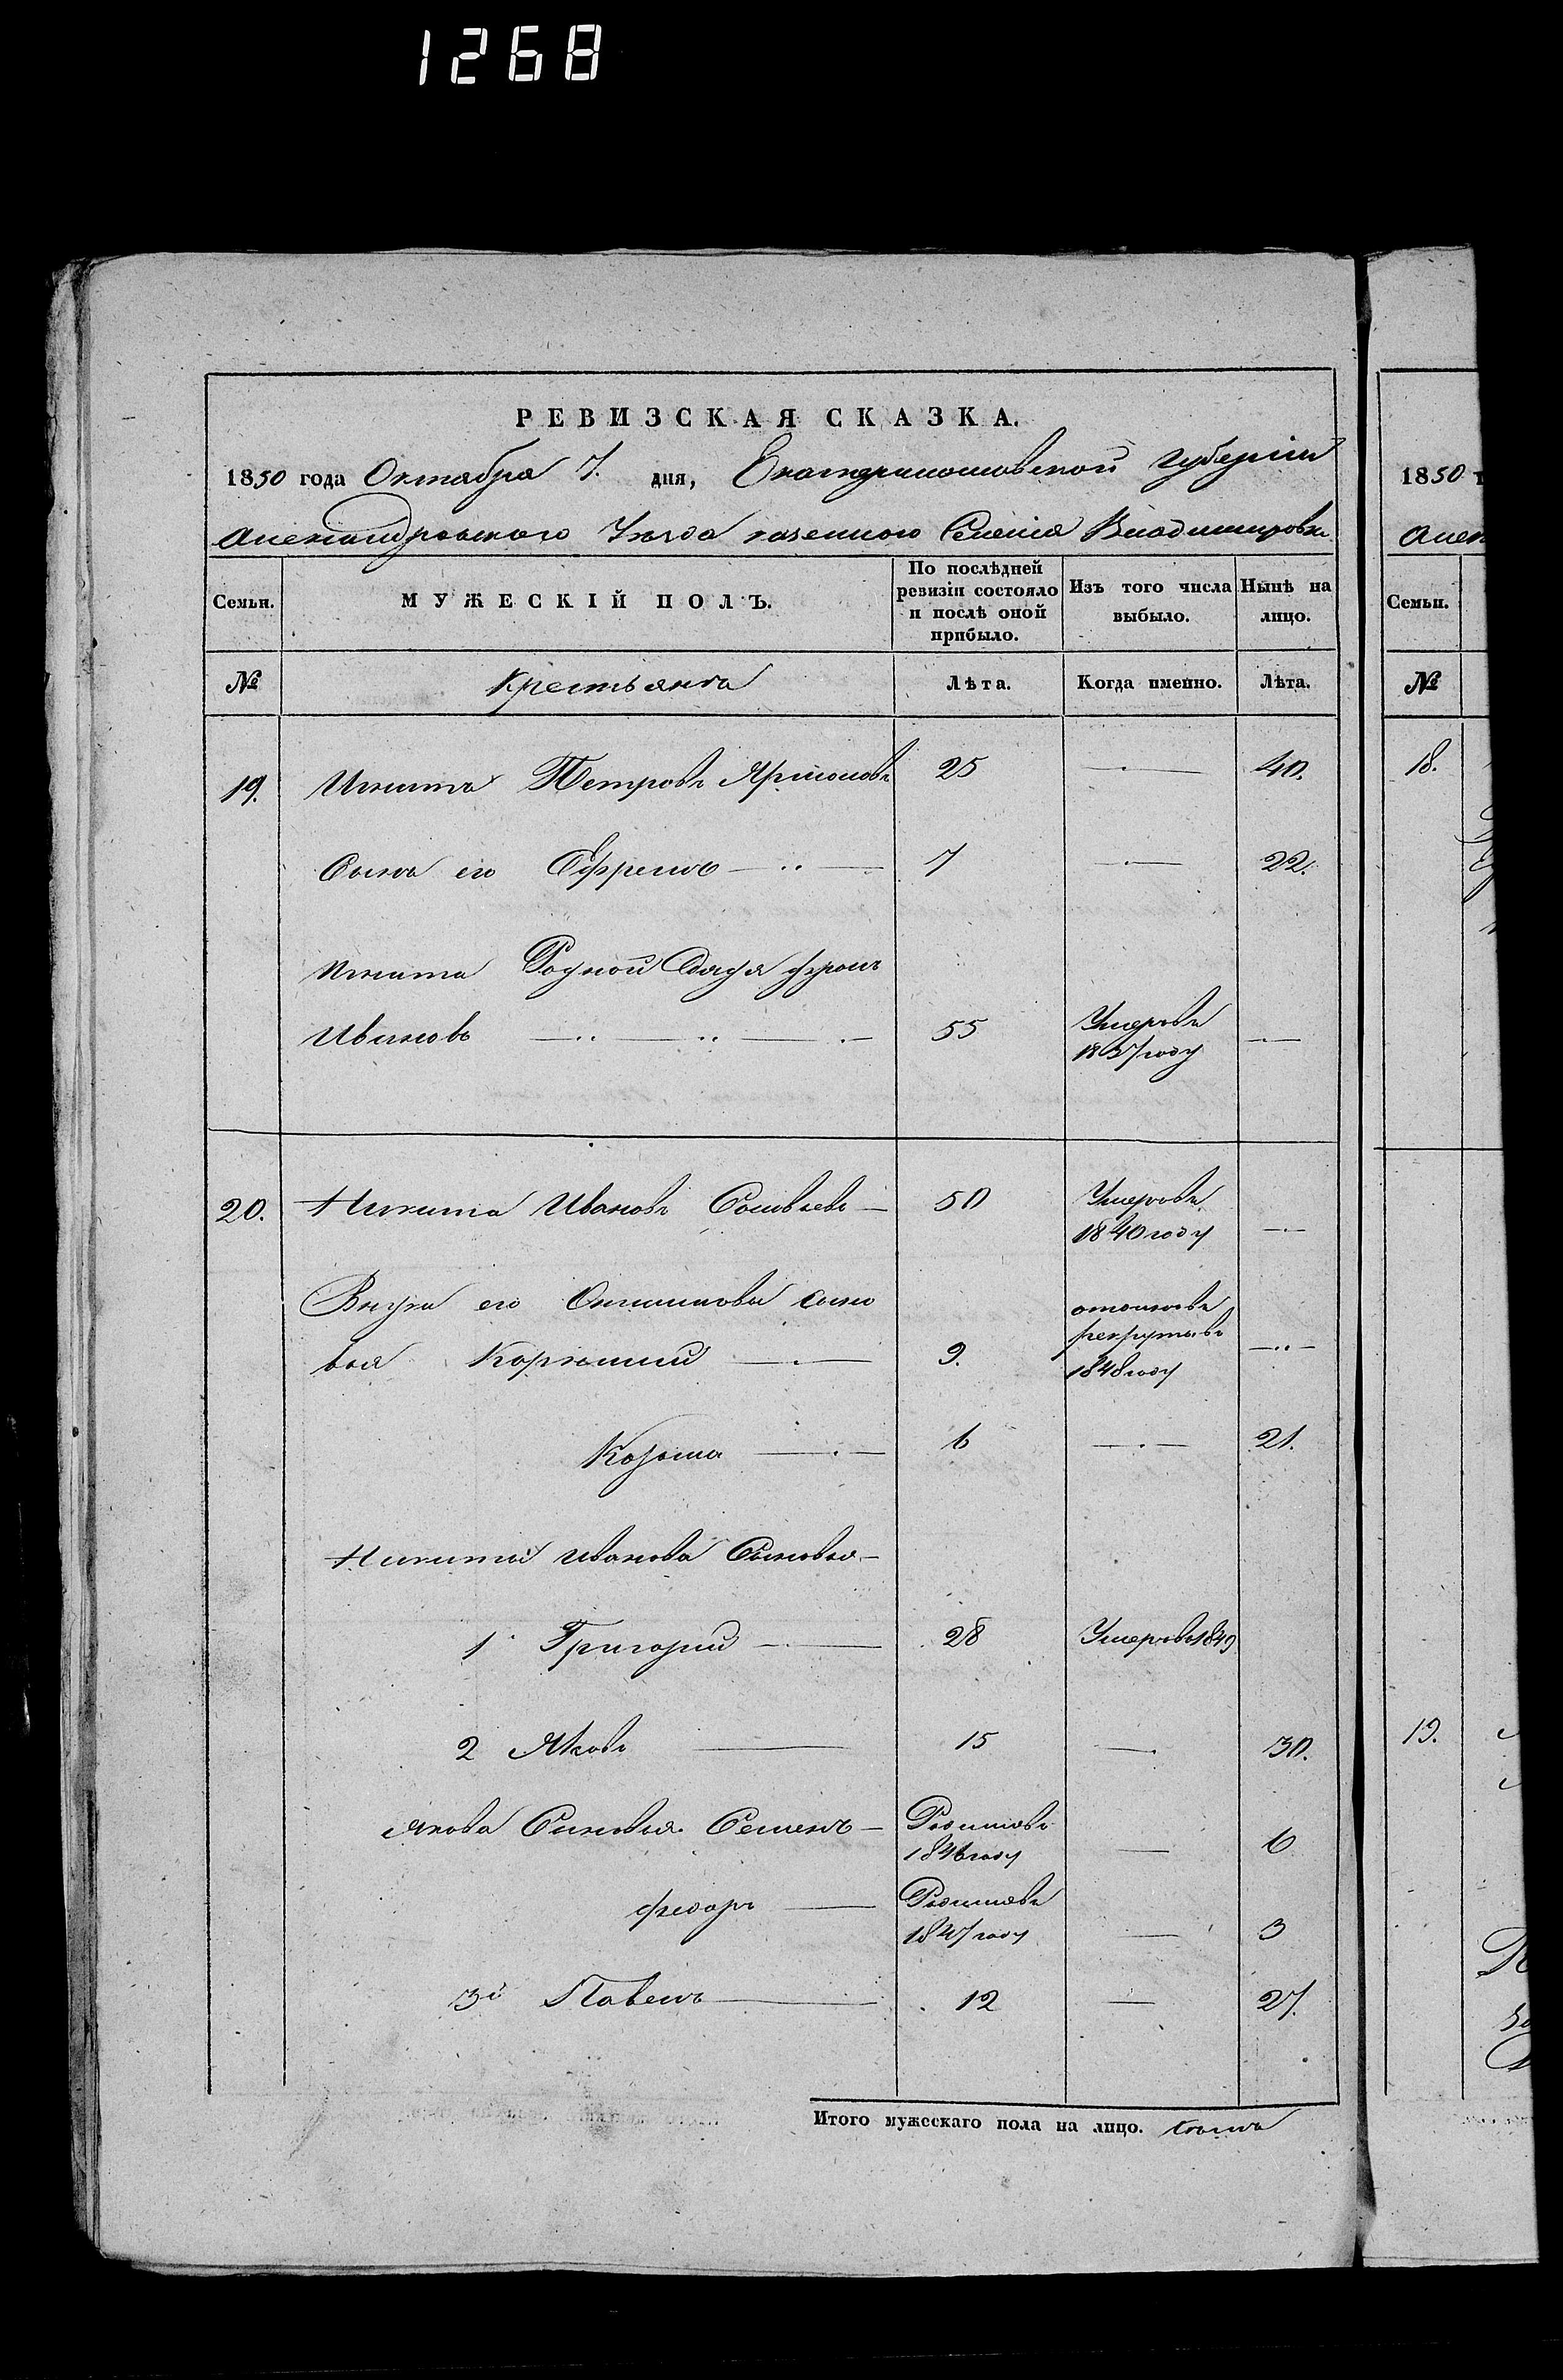 1268
РЕВИЗСКАЯ СКАЗКА.
1850 года Октября 7. дня, Екатеринославской губерніи
Александровского Уезда казенного Селенія Владимировки
Семьи.
МУЖЕСКІЙ ПОЛЪ.
По послѣдней ревизіи состояло и послѣ оной прибыло.
Изъ того числа выбыло.
Нынѣ на лицо.
№
Крестьяне
Лѣта.
Когда именно.
Лѣта.
19. Петровъ 25 40.
Сынъ его Ефремъ 7 22.
Родной Дядя
Ивановъ 55 Умеръ въ
1837 году
20. Никита Ивановъ Соловьевъ 50 Умеръ въ
1840 году
Внуки его сыно
вья Корнилий 9. въ рекруты въ
1848 году
Козьма 6 21.
Никиты Иванова Сыновья
1й Григорий 28 Умеръ въ 1849
2 Яковъ 15 30.
Якова Сыновья Семенъ 6
Федоръ 1847 году 3
3й Павелъ 12 27.
Итого мужескаго пола на лицо. семь
1850 г
Алек
Семьи.
№
18.
19.